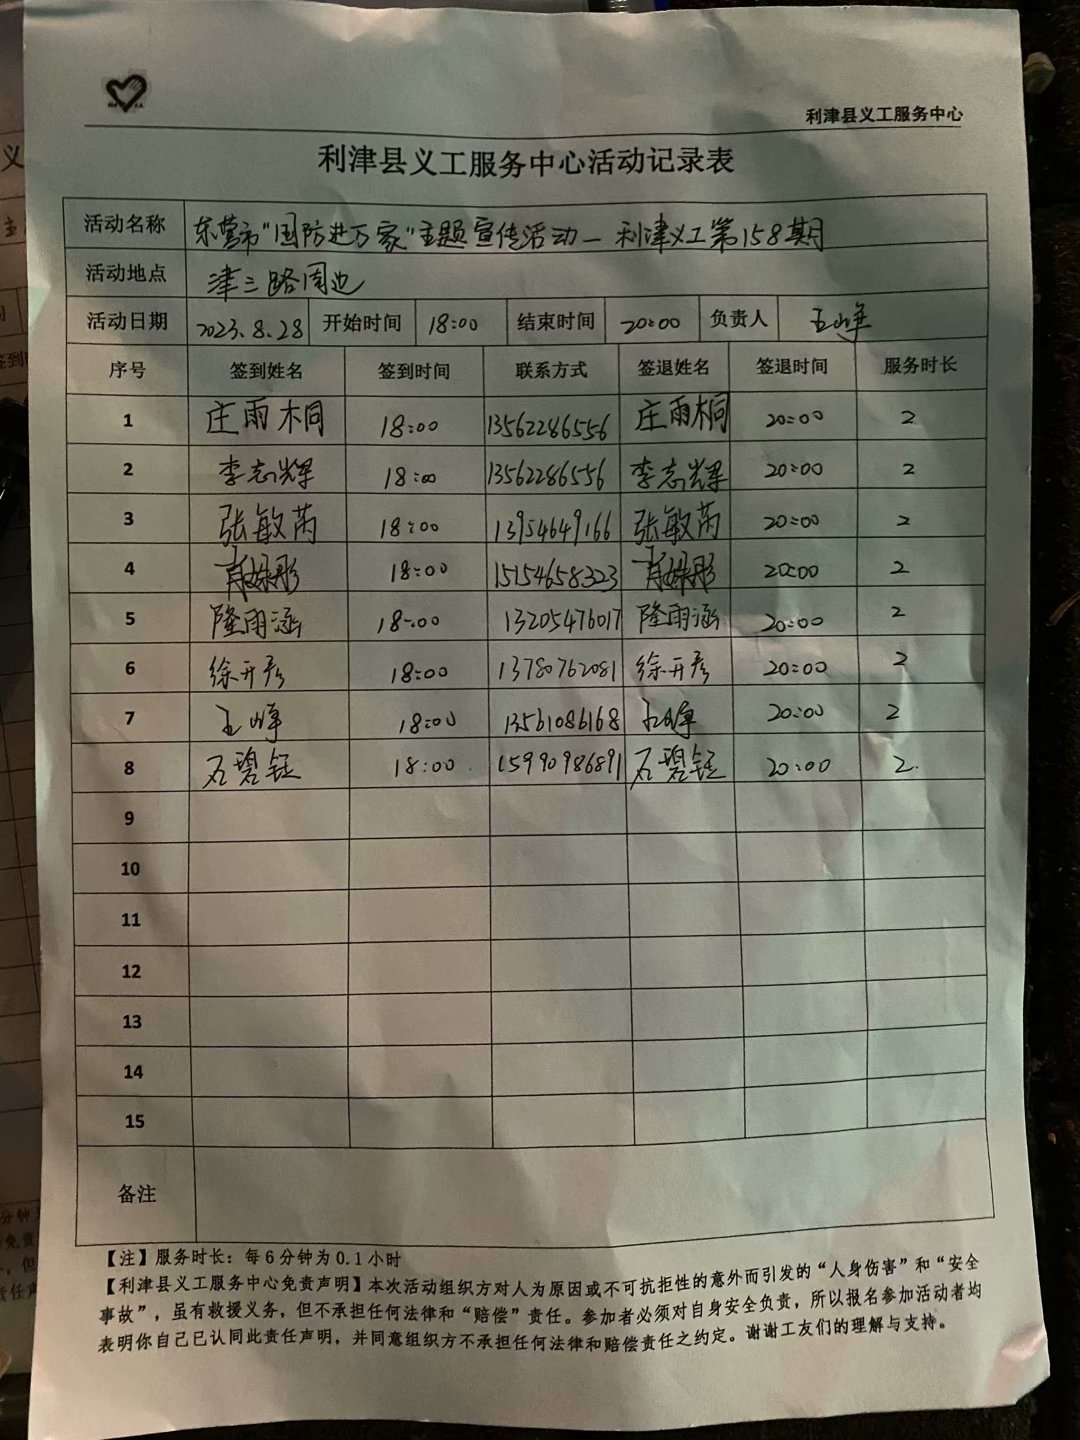 利津县义工服务中心
利津县义工服务中心活动记录表
活动名称 东营市“国防进万家”主题宣传活动—利津义工第158期
活动地点 津三路周边
活动日期 2023.8.28 开始时间 18:00 结束时间 20:00 负责人 王峰
序号 签到姓名 签到时间 联系方式 签退姓名 签退时间 服务时长
1 庄雨桐 18:00 13562286556 庄雨桐 20:00 2
2 李志辉 18:00 13562286556 李志辉 20:00 2
3 张敏芮 18:00 13954649166 张敏芮 20:00 2
4 18:00 15154658323 20:00 2
5 隆雨涵 18:00 13205476017 隆雨涵 20:00 2
6 徐开彦 18:00 13780762081 徐开彦 20:00 2
7 王峰 18:00 13561086168 王峰 20:00 2
8 石碧钰 18:00 15990986891 石碧钰 20:00 2
9
10
11
12
13
14
15
备注
【注】服务时长：每6分钟为0.1小时
【利津县义工服务中心免责声明】本次活动组织方对人为原因或不可抗拒性的意外而引发的“人身伤害”和“安全
事故”，虽有救援义务，但不承担任何法律和“赔偿”责任。参加者必须对自身安全负责，所以报名参加活动者均
表明你自己已认同此责任声明，并同意组织方不承担任何法律和赔偿责任之约定。谢谢工友们的理解与支持。